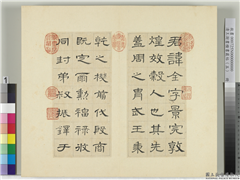 君諱全字景完敦
煌效穀人也其先
蓋周之胄武王秉
乾之機翦伐殷商
既定爾勳福祿攸
同封弟叔振鐸于